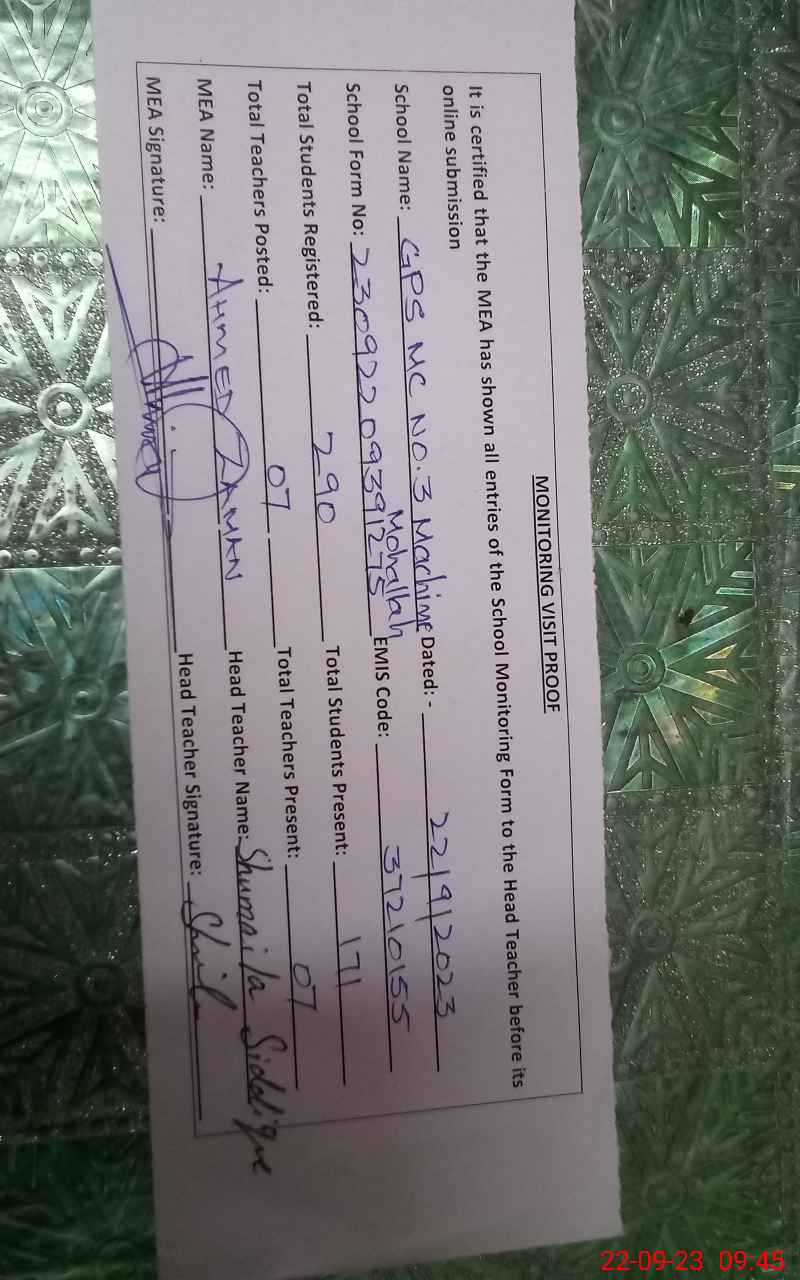 MONITORING VISIT PROOF
It is certified that the MEA has shown all entries of the School Monitoring Form to the Head Teacher before its
online submission
School Name: GPS MC NO.3 Machine Mohallah Dated: - 22/9/2023
School Form No: 23092209391275 EMIS Code: 37210155
Total Students Registered: 290 Total Students Present: 171
Total Teachers Posted: 07 Total Teachers Present: 07
MEA Name: AHMED ZAMAN Head Teacher Name: Shumaila Siddique
MEA Signature: Head Teacher Signature:
22-09-23 09.45